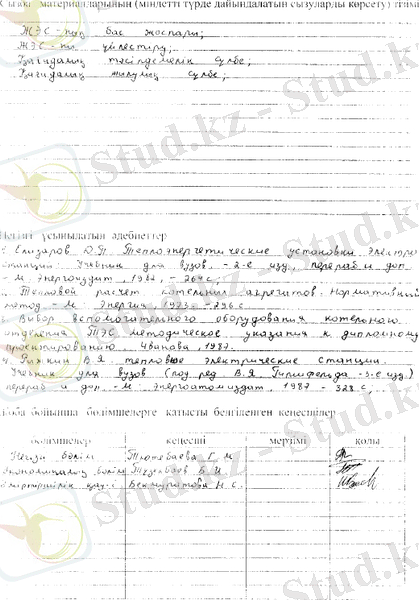 материалдарының (міндетті түрде дайындалатын сызуларды көрсету) тізімі
ЖЭС-ның бас жоспары;
ЖЭС-ның үйлестіру;
Қағидалық тәсілдемелік сұлбе;
Қағидалық жылулық сұлбе;
Негізгі ұсынылатын әдебиеттер
1. Елизаров Д.П. Теплоэнергетические установки электро
станций. Учебник для вузов, - 2-е изд., перераб и доп.
- М. Энергоиздат. 1982, - 264 с.
Тепловой расчет котельных агрегатов. Нормативный
метод - М. Энергия, 1973 - 296 с.
3. Выбор вспомогательного оборудования котельного
отделения ТЭС методическое указания к дипломному
проектированию. Иванова, 1987.
4. Рыжкин В.Я. тепловые электрические станции.
Учебник для вузов (под ред. В.Я. Гиршфельда - 3-е изд.)
перераб и доп. - М. Энергоатомиздат. 1987 - 328 с.
Жоба бойынша бөлімшелерге қатысты белгіленген кеңесшілер
бөлімшелер кеңесші мерзімі қолы
Негізгі бөлім Тютебаева Г.М.
Экономикалық бөлім Тузелбаев Б.И.
қауіп Бекмуратова Н.С.
Stud.kz - Stud.kz
Stud.kz - Stud.kz
Stud.kz - Stud.kz